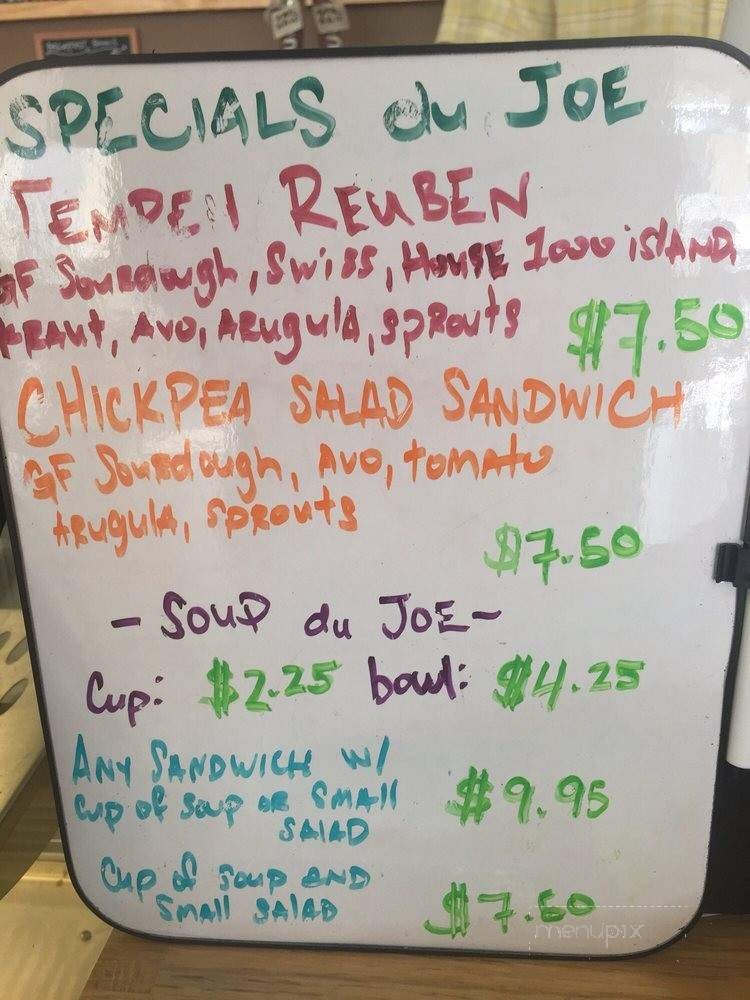 SPECIALS du JOE
TEMPEH REUBEN
GF Sourdough, Swiss, House 1000 island
kraut, Avo, Arugula, sprouts $7.50
CHICKPEA SALAD SANDWICH
GF Sourdough, Avo, tomato
Arugula, Sprouts
$7.50
- SOUP du JOE -
Cup: $2.25 bowl: $4.25
ANY SANDWICH W/
cup of soup or Small
SALAD
$9.95
Cup of soup AND
Small SALAD
$7.50
menupix